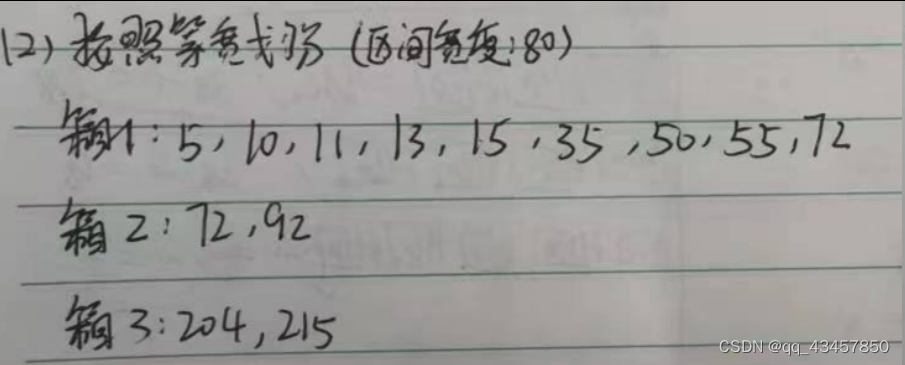 (2) 按照等宽划分 (区间宽度:80)
箱1:5,10,11,13,15,35,50,55,72
箱2:72,92
箱3:204,215
CSDN @qq_43457850